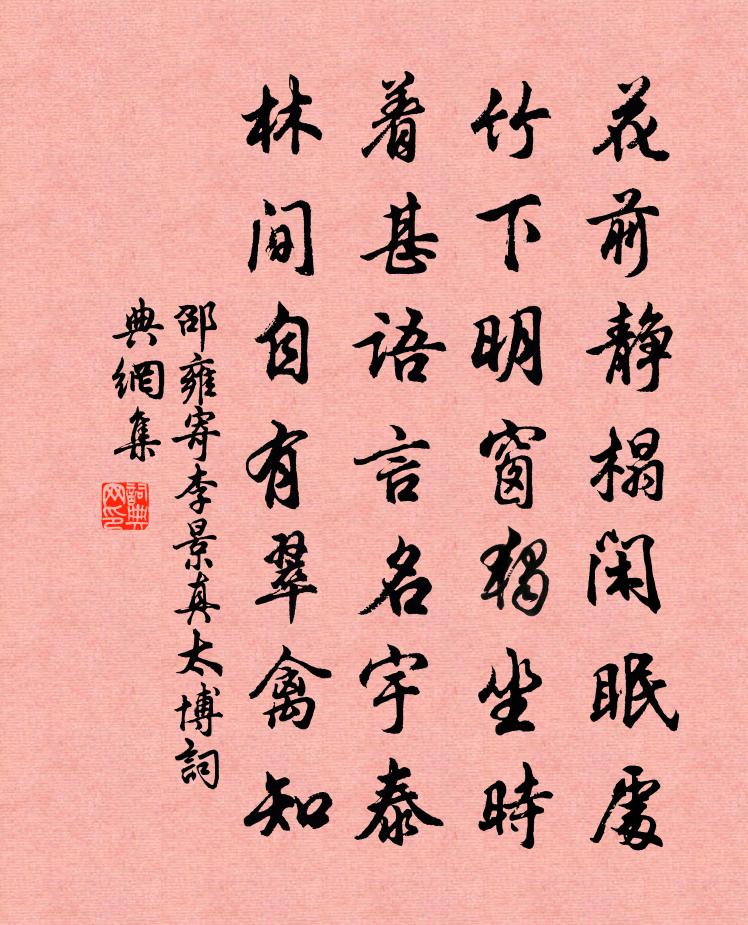 花前静榻闲眠處
竹下明窗獨坐時
着甚語言名宇泰
林間自有翠禽知
邵雍寄李景真太博詞
典網集
詞典
网印